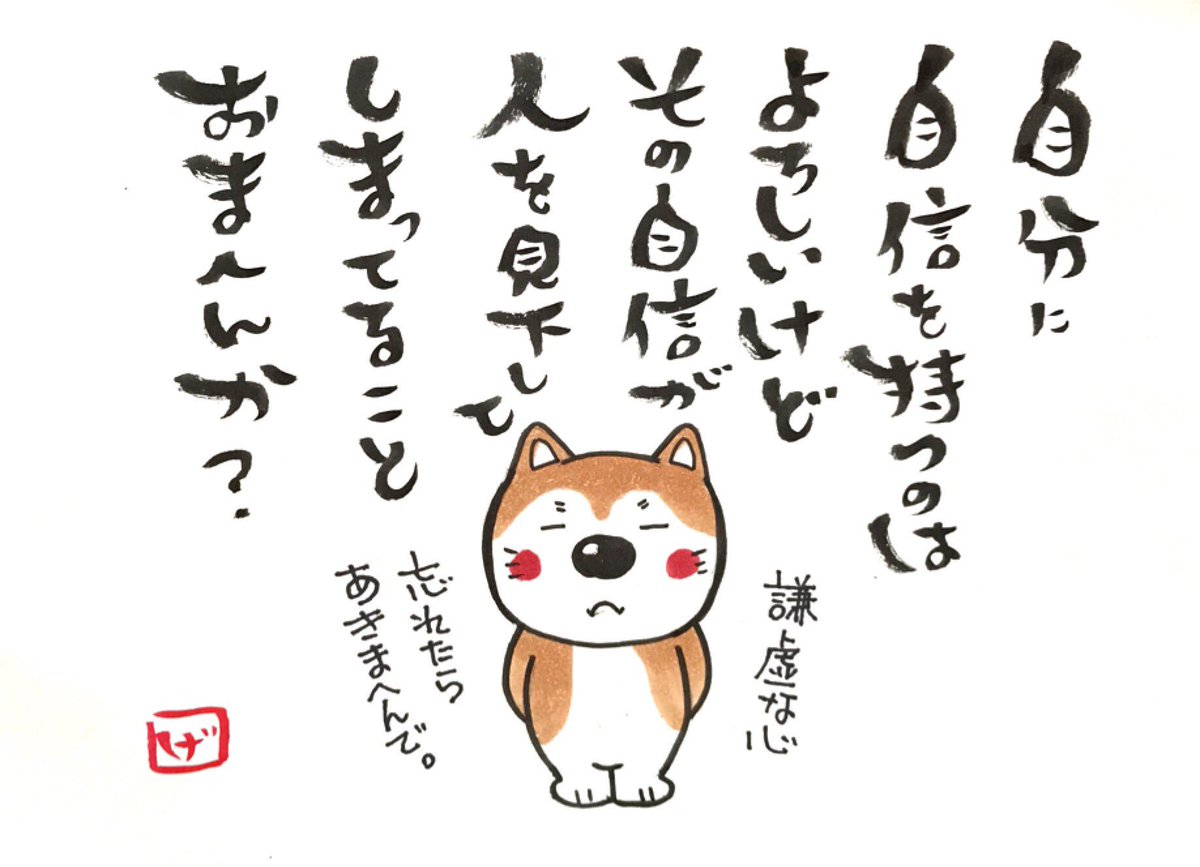 自分に
自信を持つのは
よろしいけど
その自信が
人を見下して
しまってること
おまへんか?
謙虚な心
忘れたら
あきまへんで。
げ